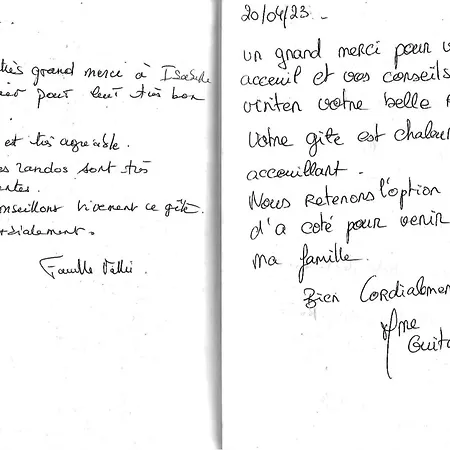 très grand merci à Isabelle
pour leur très bon
et très agréable.
randos sont très
conseillons vivement ce gîte.
cordialement.
Famille
20/04/23.
un grand merci pour v
acceuil et vos conseils
visiter votre belle
Votre gîte est chaleur
accouillant.
Nous Retenons l'option
d'a coté pour venir
ma famille.
Bien Cordialemen
Mme
Guit